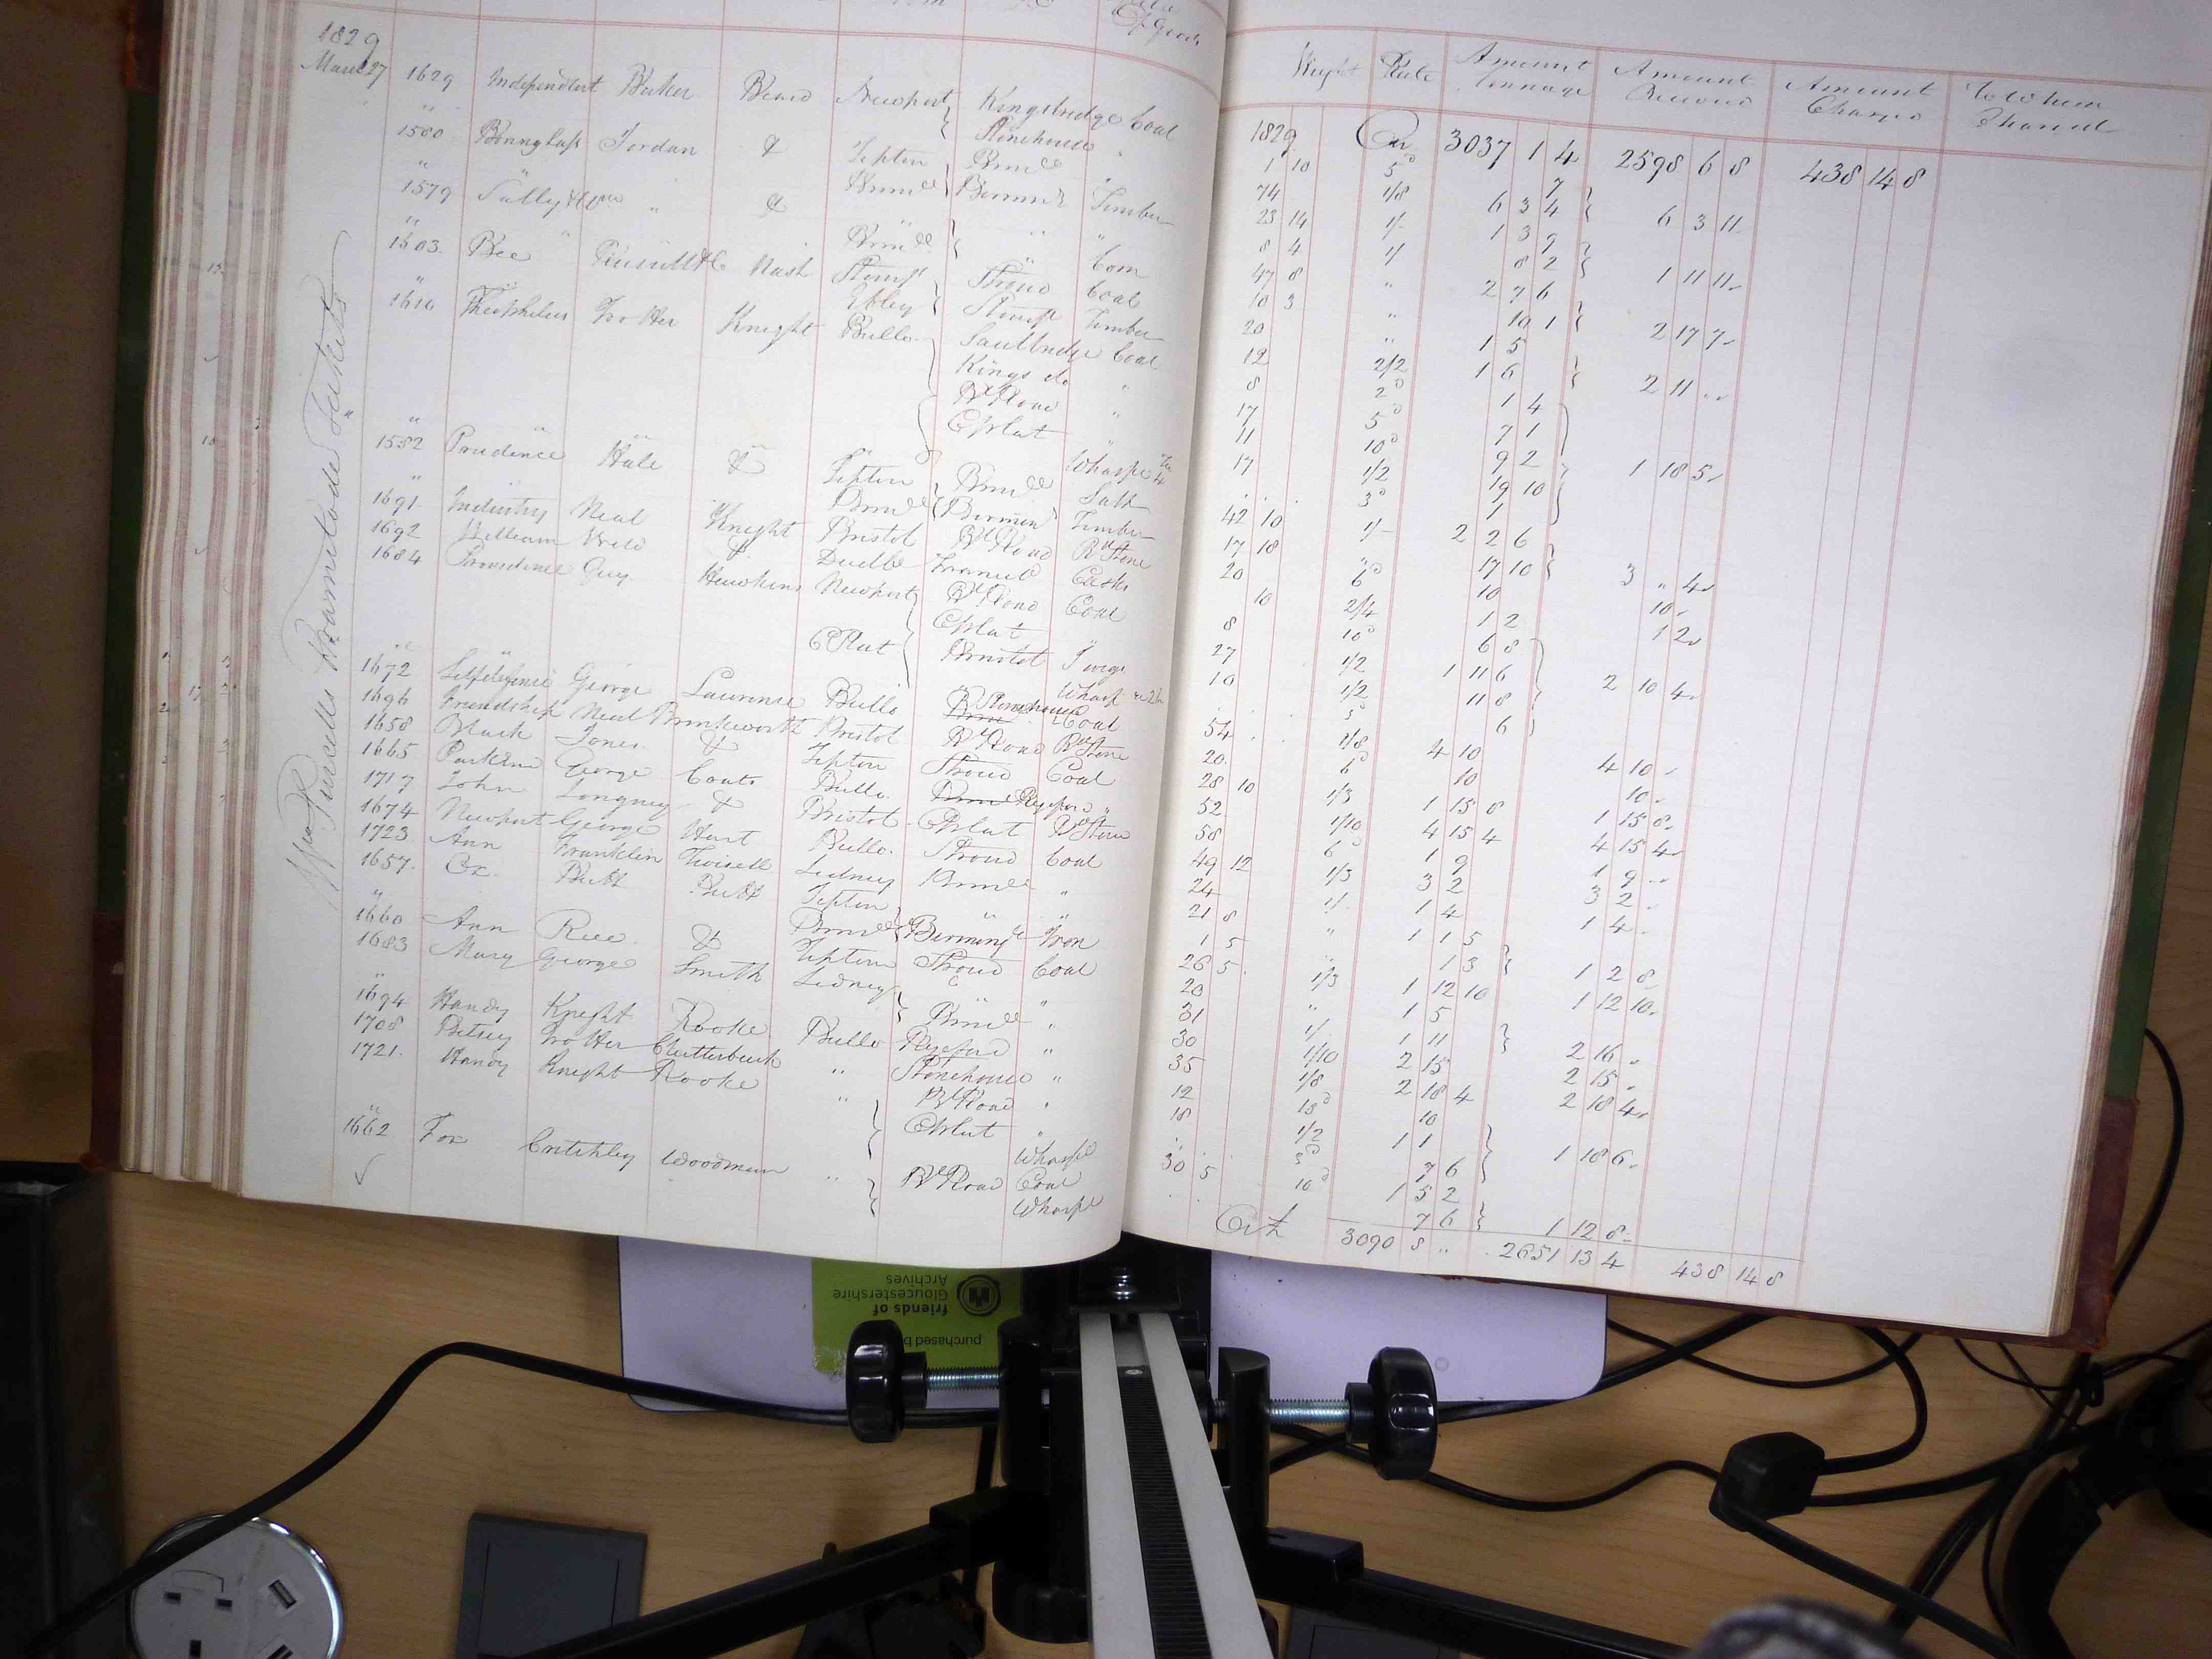 1829
March 27 1629 Independent Baker Beard Newport Kingsbridge Coal
" " Stonehouse "
1580 Bonny Lass Jordan & Tipton Brimd "
" Brimd Birmm Timber
1579 Sally & Co " & " " "
" Brimd " Corn
1503 Bee " Nash Stonehs Stroud Coal
" Ebley Timber
1610 Theophilus Trotter Knight Bullo Saulbridge Coal
Kings do "
Rd Road "
C Plat "
" Wharfe
1582 Prudence Hale & Tipton Brimd Salt
" Brimd Birmm Timber
1691 Industry Neal Knight Bristol Rd Road Rd Stone
1692 William & Dudbe Casks
1684 Providence Guy Hawkins Newport Rd Road Coal
C Plat
C Plat Bristol
Wharf
1672 George Lawrence Bullo Stonehouse Coal
1696 Friendship Neal Brinkworth Bristol Rd Road Rd Stone
1658 Black Jones & Tipton Stroud Coal
1665 George Coats Bullo Ryeford "
1717 John Longney & Bristol C Plat Rd Stone
1674 Newport George Hart Bullo Stroud Coal
1723 Ann Franklin Twisell Lidney Brimd "
1657 Ox Butt Butt Tipton " "
" Brimd Birming Iron
1660 Ann Rice & Tipton Stroud Coal
1683 Mary George Smith Lidney " "
Brimd "
1694 Handy Knight Rooke Bullo Ryeford "
1708 Betsey Trotter Clutterbuck " Stonehouse "
1721 Handy Knight Rooke " Rd Road "
C Plat "
" Wharfe
1662 Fox Critchley Woodman " Rd Road Coal
Wharfe
Bramilode Tickets
Weight Rate Amount Tonnage Amount Received Amount Charged To Whom Charged
1829 3037 1 4 2598 6 8 438 14 8
1 10 5d 7
74 1/8 6 3 4 6 3 11
23 14 1/- 1 3 9
8 4 1/ 8 2 1 11 11
47 8 " 2 7 6
10 3 " 10 1 2 17 7
20 " 1 5
12 2/2 1 6 2 11 "
8 2d 1 4
17 5d 7 1
11 10d 9 2 1 18 5
17 1/2 19 10
3d 1
42 10 1/- 2 2 6
17 18 " 17 10 3 " 4
20 6d 10 10
10 2/4 1 2 1 2
8 10d 6 8
27 1/2 1 11 6 2 10 4
10 1/2 11 8
3d 6
54 1/8 4 10 4 10
20 6d 10 10
28 10 1/3 1 15 8 1 15 8
52 1/10 4 15 4 4 15 4
58 6d 1 9 1 9
49 12 1/3 3 2 3 2
24 1/ 1 4 1 4
21 8 " 1 1 5
1 5 " 1 3 1 2 8
26 5 1/3 1 12 10 1 12 10
20 " 1 5
31 1/ 1 11 2 16
30 1/10 2 15 2 15
35 1/8 2 18 4 2 18 4
12 10d 10
18 1/2 1 1 1 18 6
3d 7 6
30 5 10d 1 5 2
7 6 1 12 8
3090 8 " 2651 13 4 438 14 8
purchased b
friends of
Gloucestershire
Archives